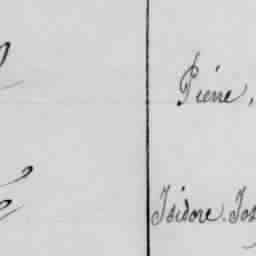 Pierre,
Isidore. Jos